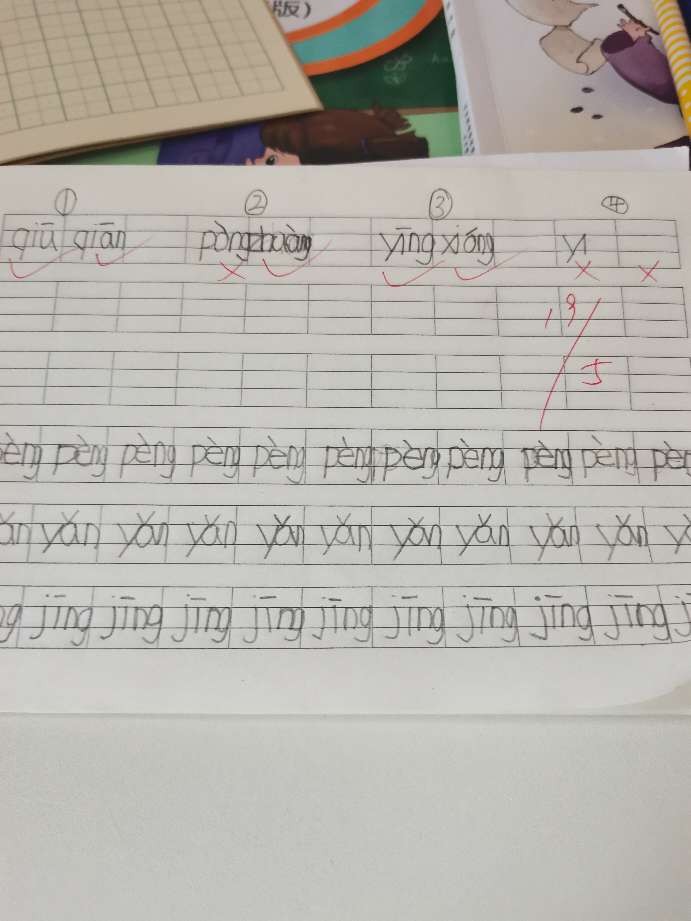 版）
① ② ③ ④
qiū qiān pòngzhuàng yīng xióng yi
13/5
pèng pèng pèng pèng pèng pèng pèng pèng pèng pèng pèng
yǎn yǎn yǎn yǎn yǎn yǎn yǎn yǎn yǎn
jīng jīng jīng jīng jīng jīng jīng jīng jīng